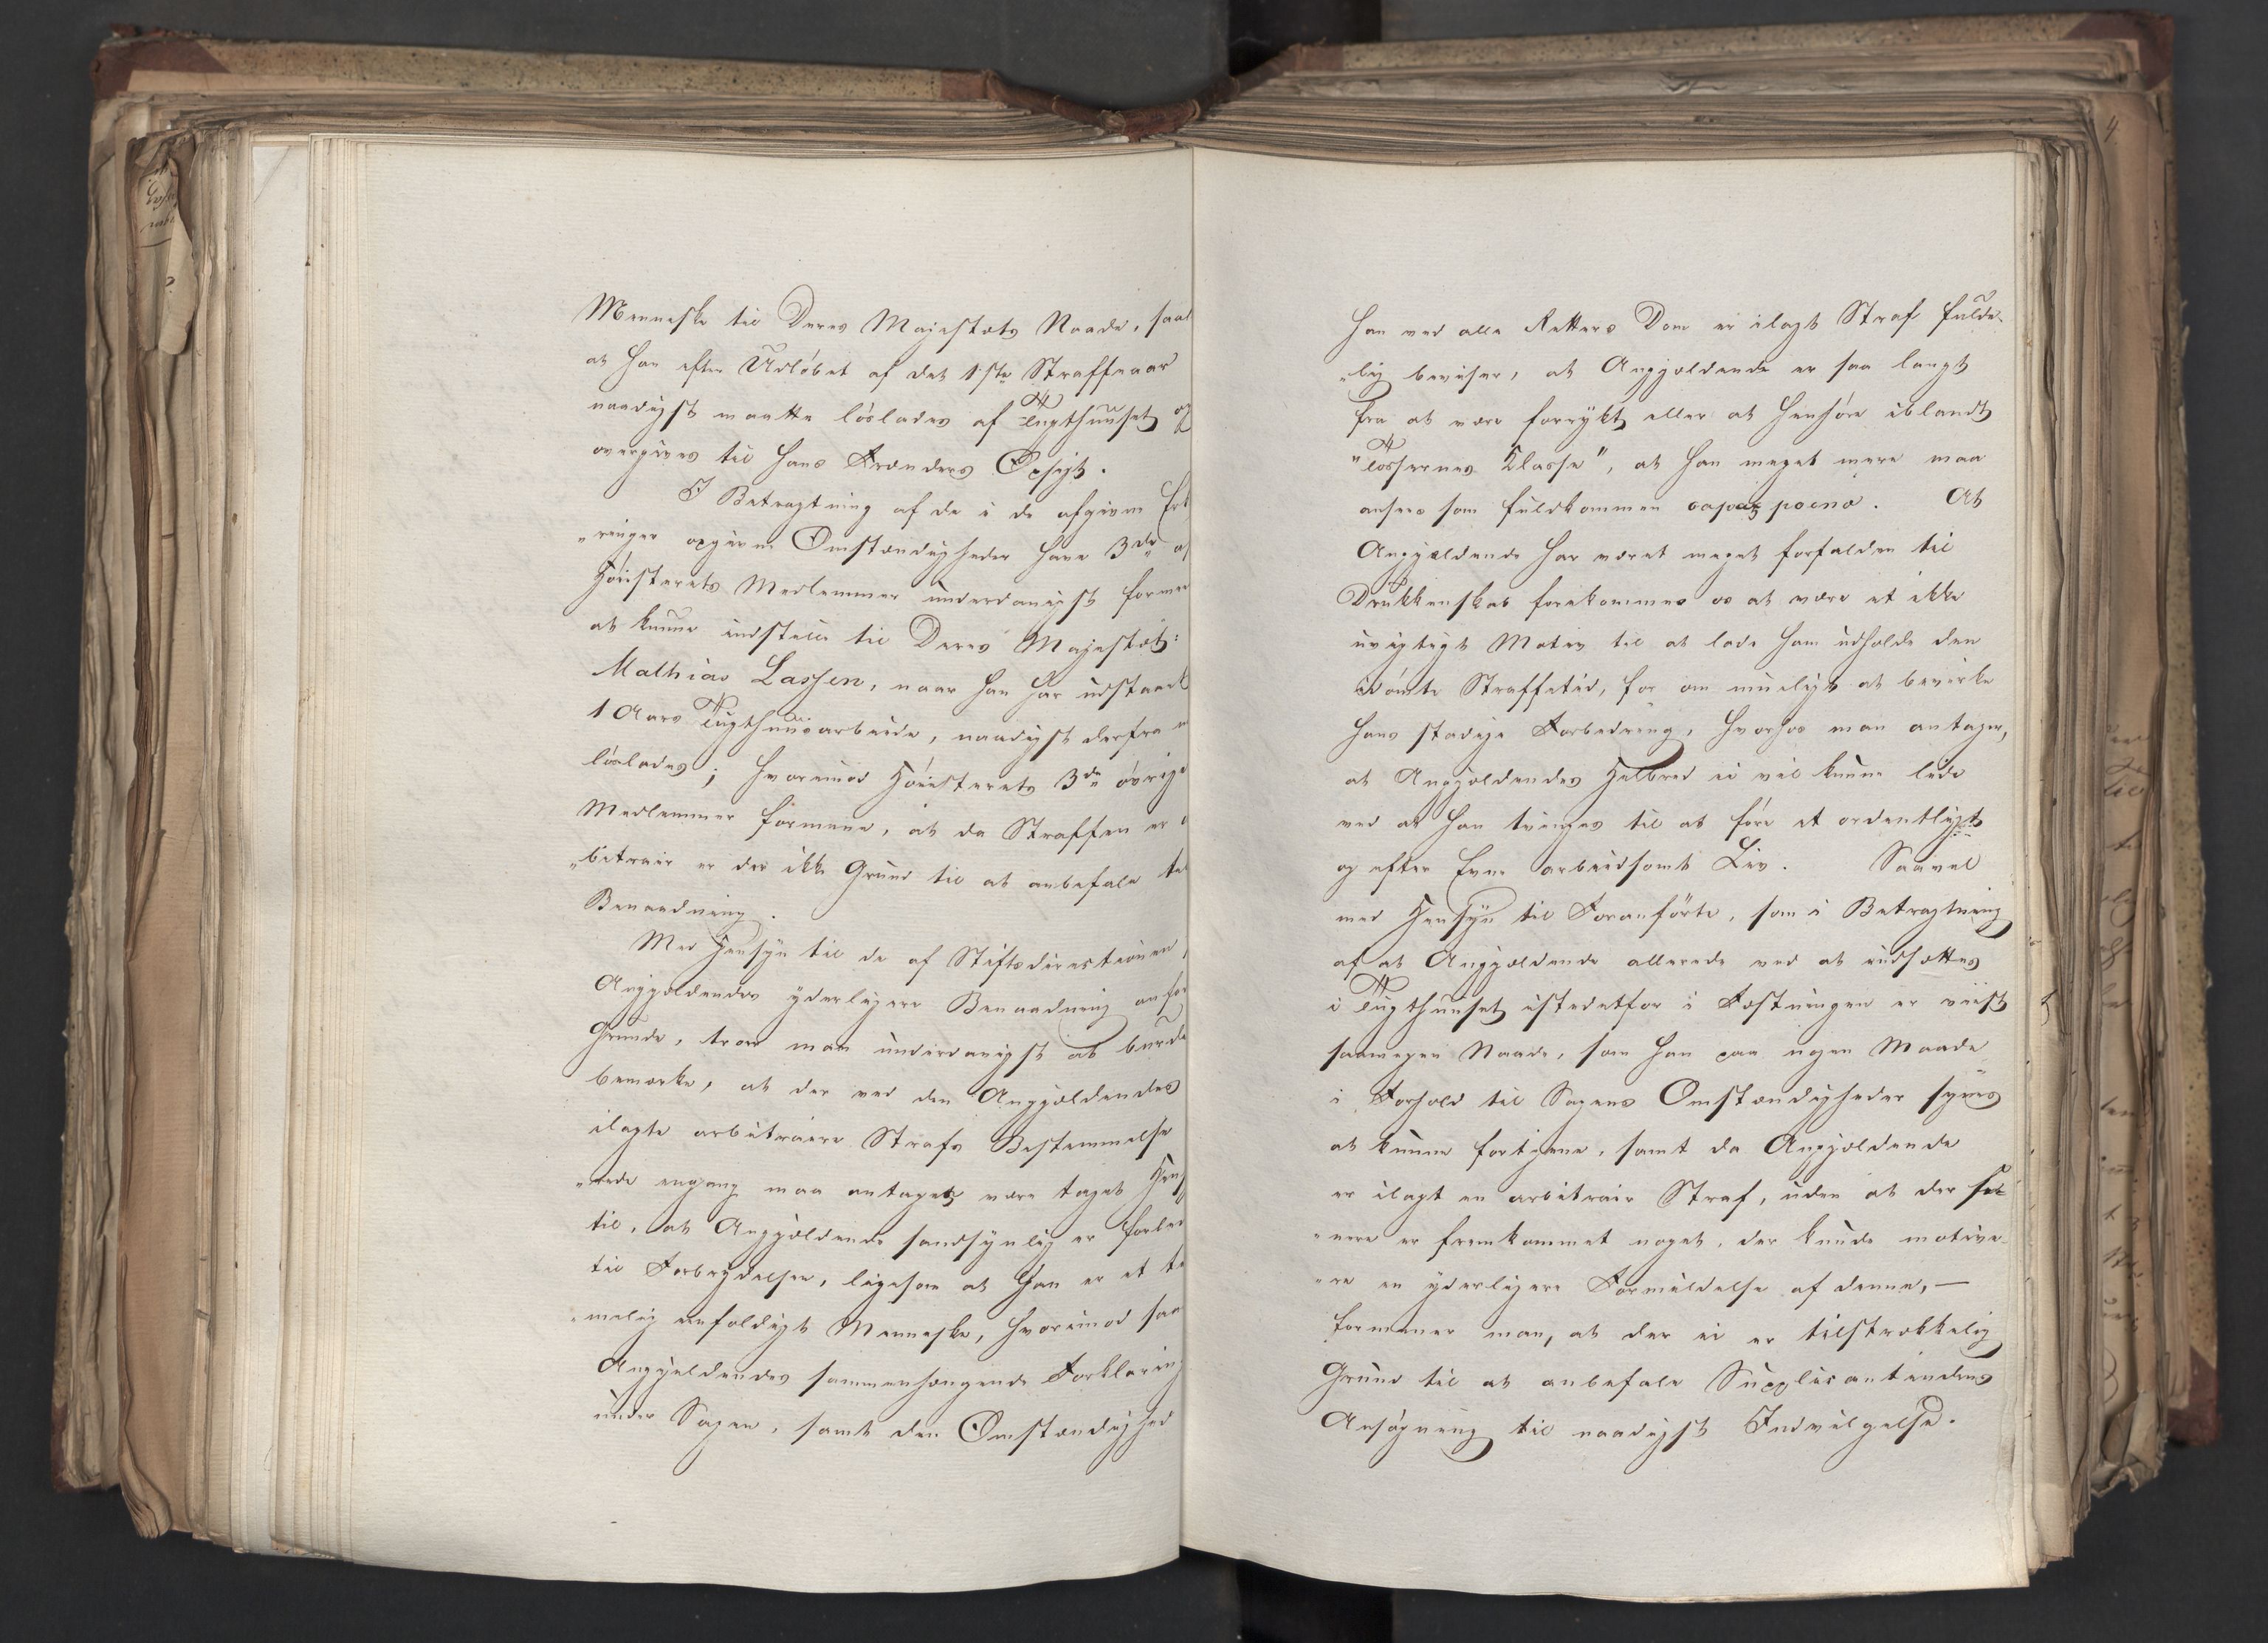 Menneske til Deres Majestæts Naade, saal
at han efter Udløbet af det 1ste Straffeaar
naadigst maatte løslades af Tugthuuset og
overgives til hans Frænders Opsigt.
I Betragtning af de i de afgivne Erk
"ringer opgivne Omstændigheder have 3de af
Høiesterets Medlemmer underdanigst formee
at kunne indstille til Deres Majestæt:
Mathias Lassen, naar han har udstaaet
1 Aars Tugthuusarbeide, naadigst derfra m
løslades; hvorimod Høiesterets 3de øvrige
Medlemmer formene, at da Straffen er
"bitrair er der ikke Grund til at anbefale
Benaadning.
Med Hensyn til de af Stiftsdirectionen,
Angjældendes yderligere Benaadning anfør
Grunde, troer man underdanigst at burde
bemærke, at der ved den Angjældendes
ilagte arbitraire Strafs Bestemmelse
"rede engang maa antages være taget Hens
til, at Angjældende sandsynlig er forled
til Forbrydelsen, ligesom at han er et te
"melig eenfoldigt Menneske, hvorimod saa
Angjeldendes sammenhængende Forklaring
under Sagen, samt den Omstændighed
han ved alle Retters Dom er ilagt Straf fulde-
"lig beviser, at Angjældende er saa langt
fra at være forrykt eller at henhøre iblandt
"Tossernes Classe", at han meget mere maa
ansees som fuldkommen capax poenæ. At
Angjældende har været meget forfalden til
Drukkenskab forekommes os at være et ikke
uvigtigt Motiv til at lade ham udholde den
idømte Straffetid, for om mueligt at bevirke
hans stadige Forbedring, hvorhos man antager,
at Angjældendes Helbred ei vil kunne lide
ved at han tvinges til at føre et ordentligt
og efter Evne arbeidsomt Liv. Saavel
med Hensyn til Foranførte, som i Betragtning
af at Angjældende allerede ved at indsættes
i Tugthuuset istedetfor i Fæstningen er viist
saamegen Naade, som han paa nogen Maade
i Forhold til Sagens Omstændigheder synes
at kunne fortjene, samt da Angjældende
er ilagt en arbitrair Straf, uden at der se-
"nere er fremkommet noget, der kunde motive-
"re en yderligere Formildelse af denne, —
formener man, at der ei er tilstrækkelig
Grund til at anbefale Supplicantindens
Ansøgning til naadigst Indvilgelse.